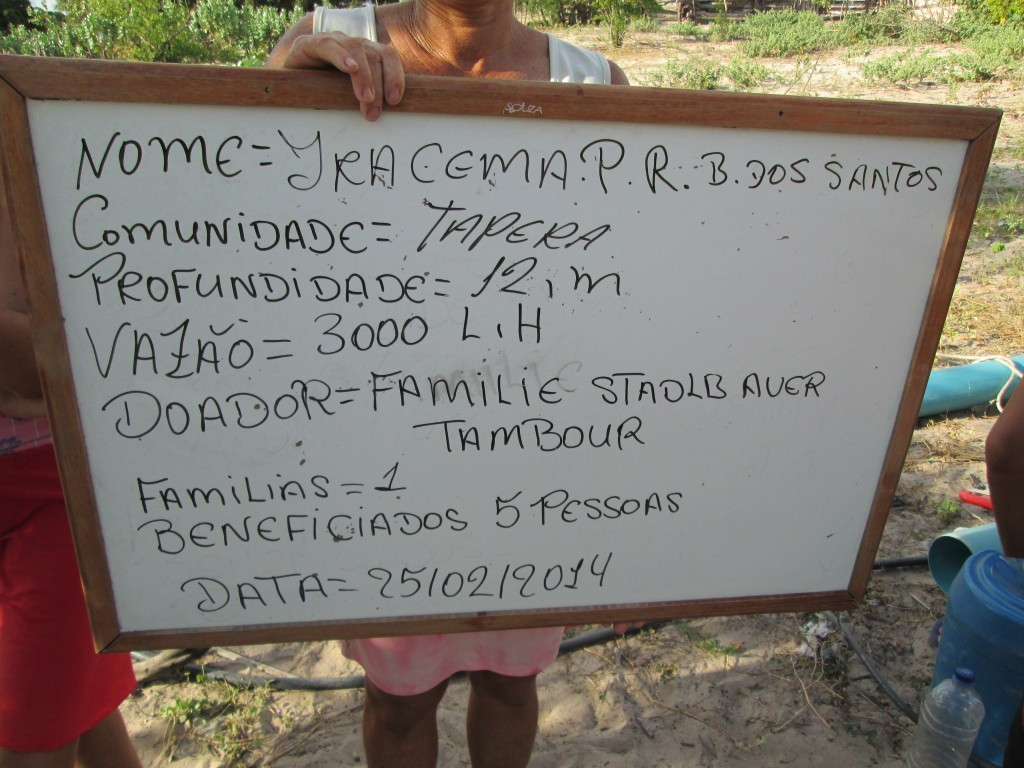 SOUZA
NOME=YRACEMA.P.R.B.DOS SANTOS
COMUNIDADE= TAPERA
PROFUNDIDADE= 12,m
VAZÃO= 3000 L.H
DOADOR=FAMILIE STADLBAUER
TAMBOUR
FAMILIAS=1
BENEFICIADOS 5 PESSOAS
DATA=25/02/2014